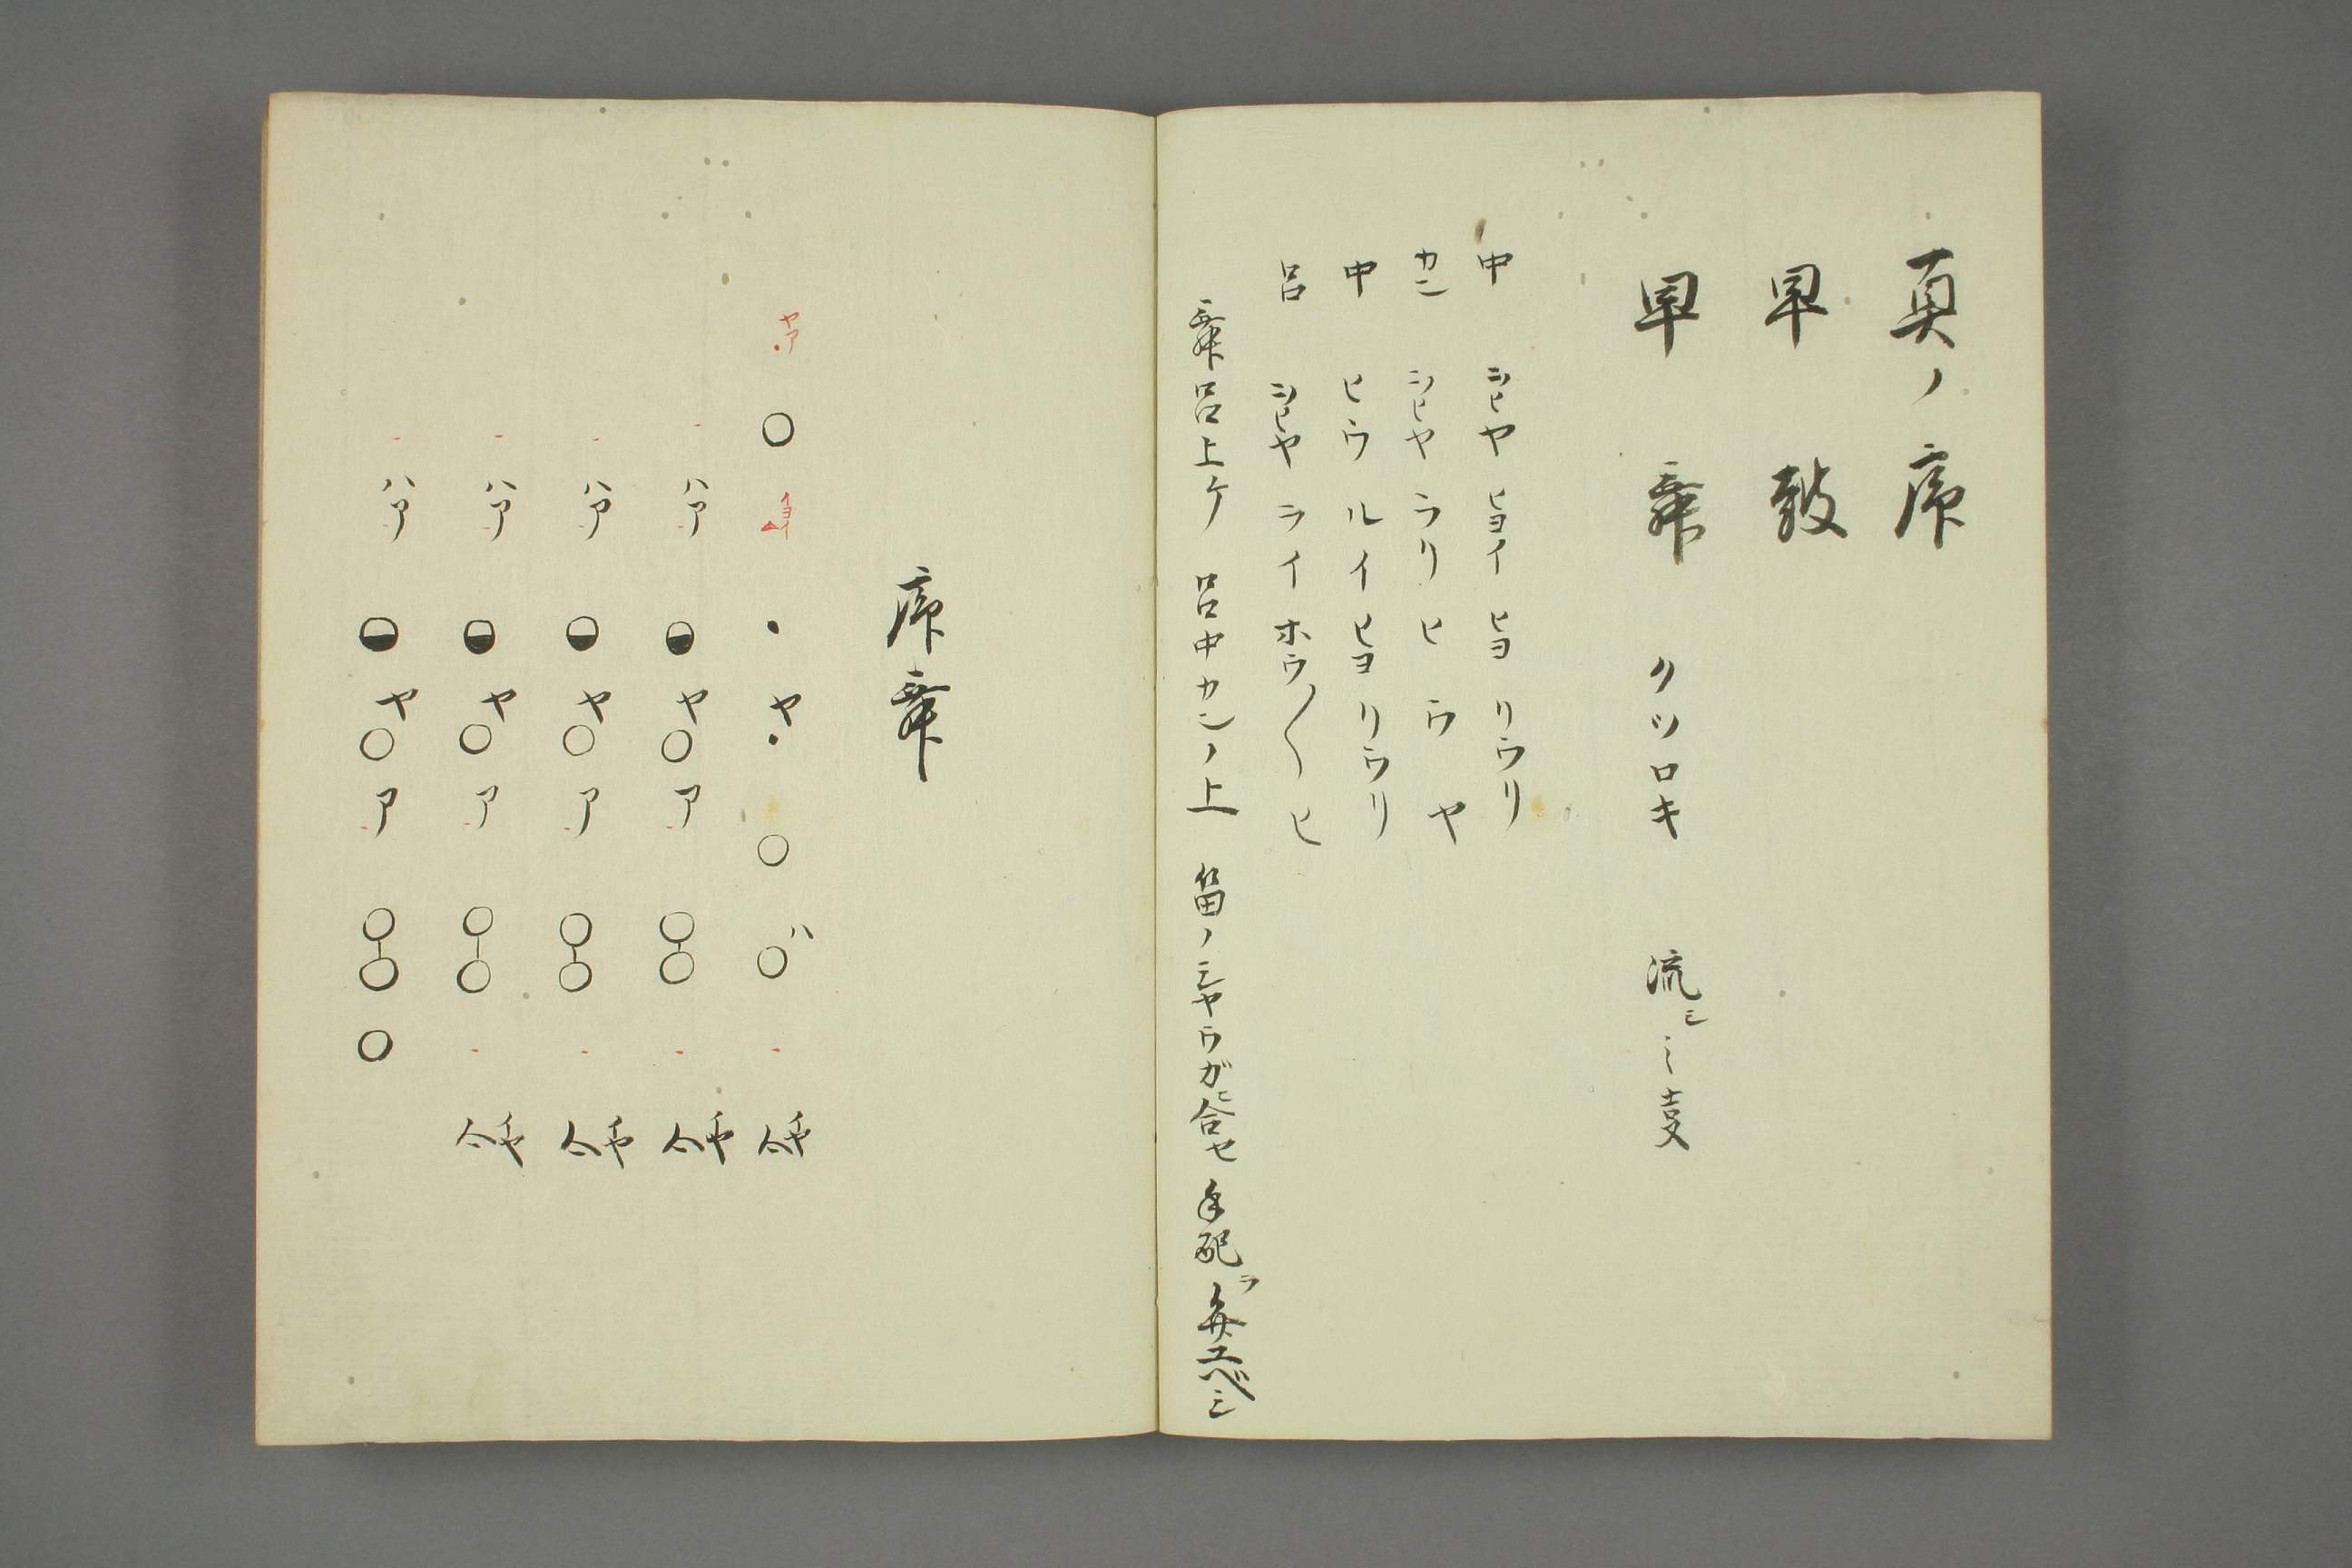 真ノ序
早鼓
早舞 クツロキ 流シ之支
中 ヲヒヤ ヒヨイ ヒヨ リウリ
カン ヲヒヤ ラリ ヒ ウ ヤ
中 ヒウ ルイ ヒヨ リウリ
呂 ヲヒヤ ライ ホウ〳〵 ヒ
舞呂上ケ 呂中カンノ上 笛ノシヤウガニ合セ
序舞
ヤア ○ ・ ヤ・ ○ ハ○
ハア ◒ ヤ○ ア ○○
ハア ◒ ヤ○ ア ○○
ハア ◒ ヤ○ ア ○○
ハア ◒ ヤ○ ア ○○ ○